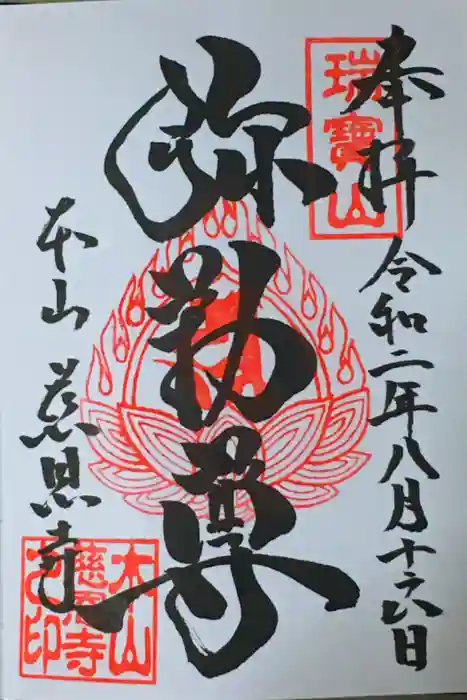 奉拝
令和二年八月十六日
瑞寶山
弥勒尊
本山 慈恩寺
本山
慈恩寺
之印